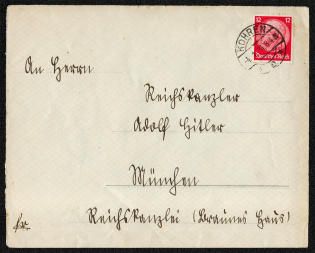 An Herrn
Reichskanzler
Adolf Hitler
München
Reichskanzlei (Braunes Haus)
fr.
KOHREN
12 12
Deutsches Reich